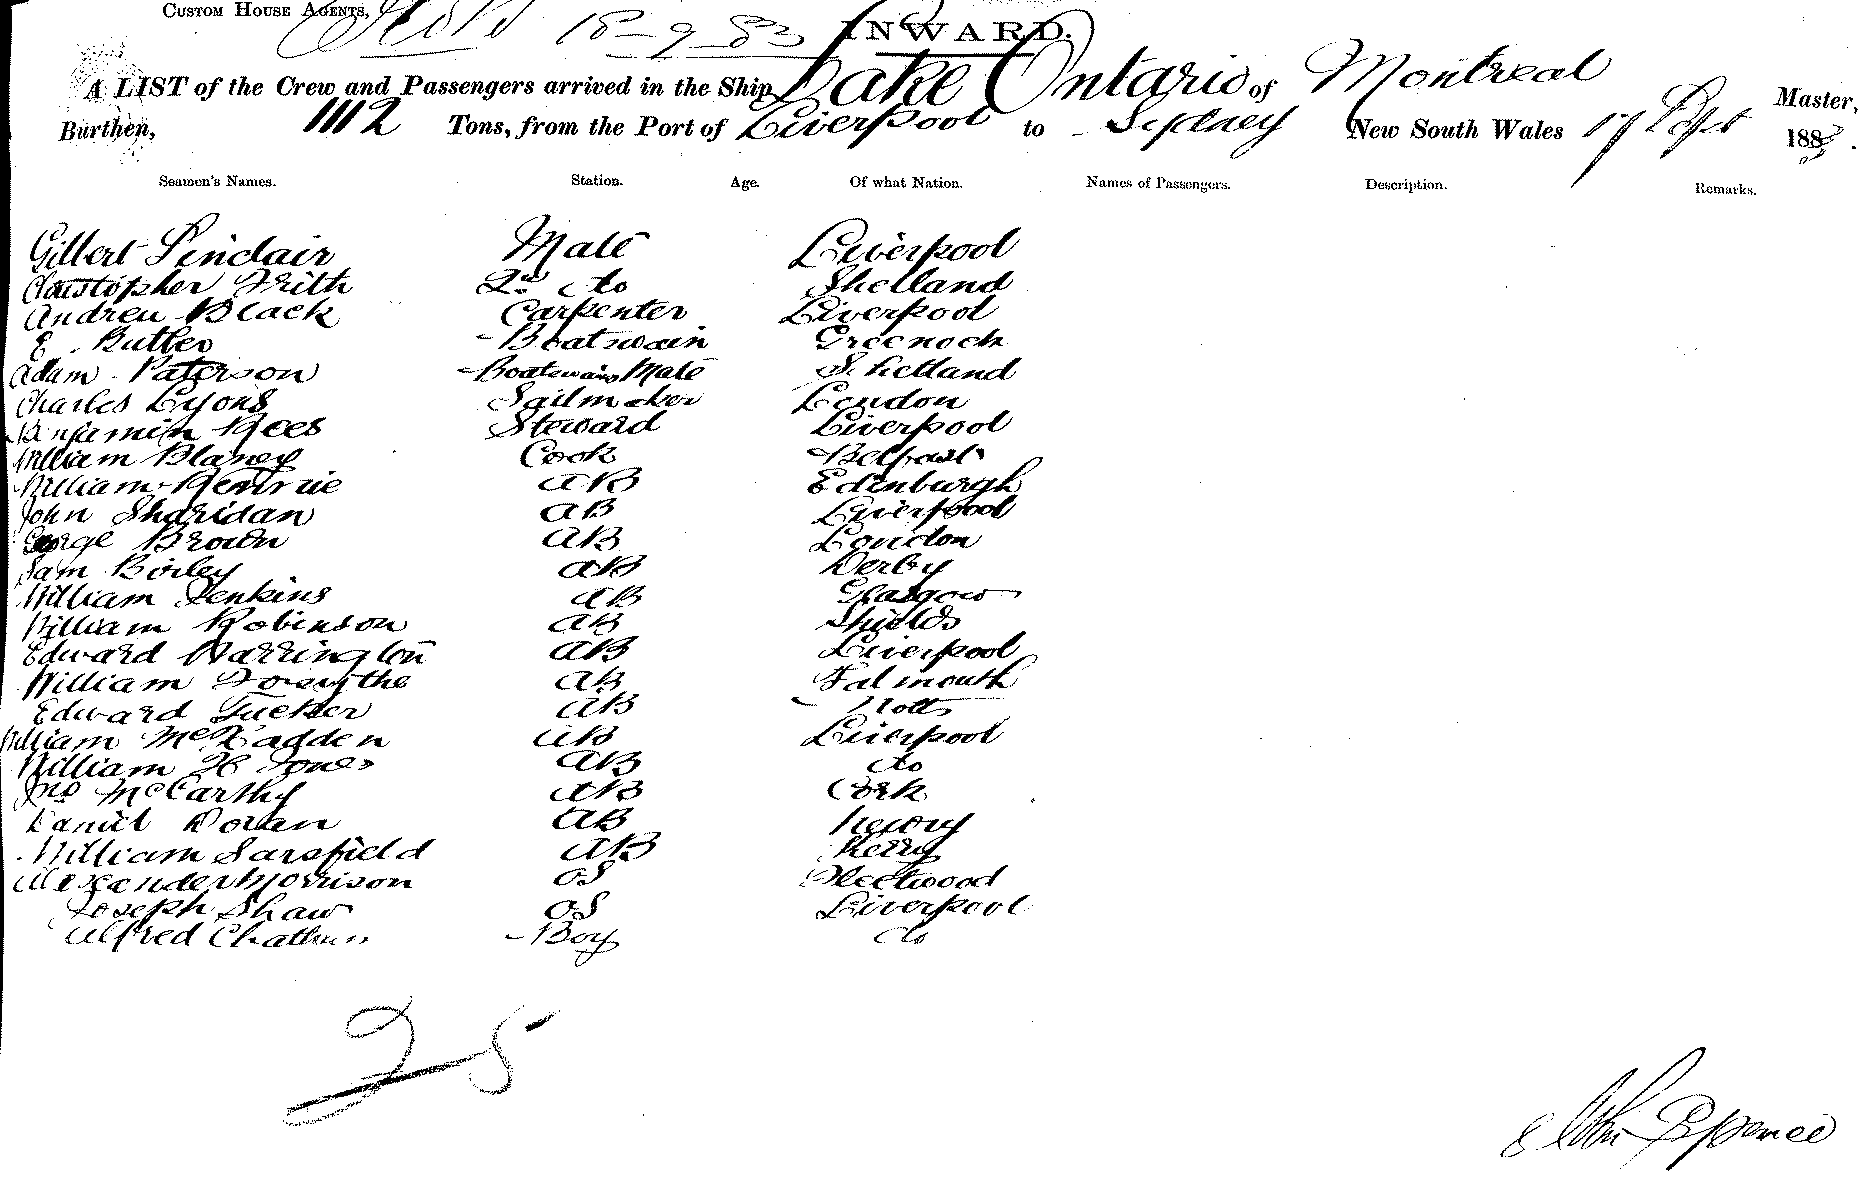 CUSTOM HOUSE AGENTS,
18-9-83
INWARD.
A LIST of the Crew and Passengers arrived in the Ship Lake Ontario of Montreal Master,
Burthen, 1112 Tons, from the Port of Liverpool to Sydney New South Wales 17 Sept 1883.
Seamen's Names. Station. Age. Of what Nation. Names of Passengers. Description. Remarks.
Gilbert Sinclair Mate Liverpool
Christopher Frith 2nd do Shetland
Andrew Black Carpenter Liverpool
E. Butler Boatswain Greenock
Adam Paterson Boatswains Mate Shetland
Charles Lyons Sailmaker London
Benjamin Rees Steward Liverpool
William Blaney Cook Belfast
William AB Edinburgh
John Sharidan AB Liverpool
George Brown AB London
Sam Birley AB Derby
William Jenkins AB Glasgow
William Robinson AB Shields
Edward Harrington AB Liverpool
William Forsythe AB Falmouth
Edward Tucker AB Notts
William McFadden AB Liverpool
William H Jones AB do
Jno McCarthy AB Cork
Daniel Doran AB Newry
William Sarsfield AB Kerry
Alexander Morrison OS Fleetwood
Joseph Shaw OS Liverpool
Alfred Boy do
25
John Spence